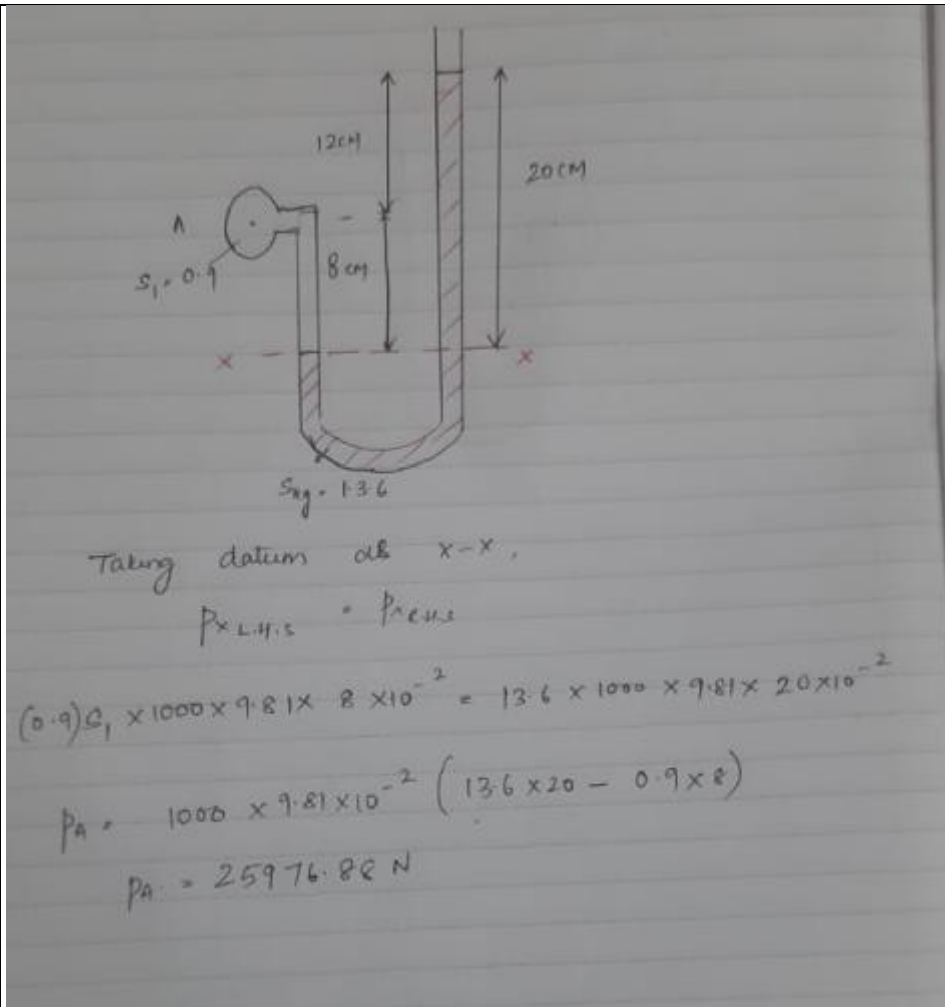 12CM
20CM
A
S₁ = 0.9
8 cm
x
x
SHg = 13.6
Taking datum at x-x,
Px L.H.S = P
(0.9)S₁ × 1000 × 9.81 × 8 × 10⁻² = 13.6 × 1000 × 9.81 × 20×10⁻²
PA = 1000 × 9.81 × 10⁻² (13.6 × 20 - 0.9 × 8)
PA = 25976.88 N